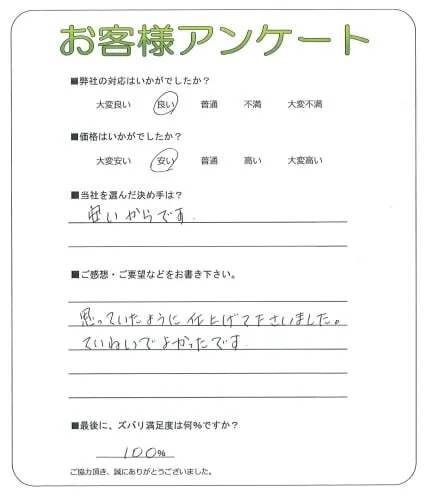 お客様アンケート
■弊社の対応はいかがでしたか？
大変良い 良い 普通 不満 大変不満
■価格はいかがでしたか？
大変安い 安い 普通 高い 大変高い
■当社を選んだ決め手は？
安いからです.
■ご感想・ご要望などをお書き下さい。
思っていたように仕上げて下さいました。
ていねいでよかったです.
■最後に、ズバリ満足度は何%ですか？
100%
ご協力頂き、誠にありがとうございました。